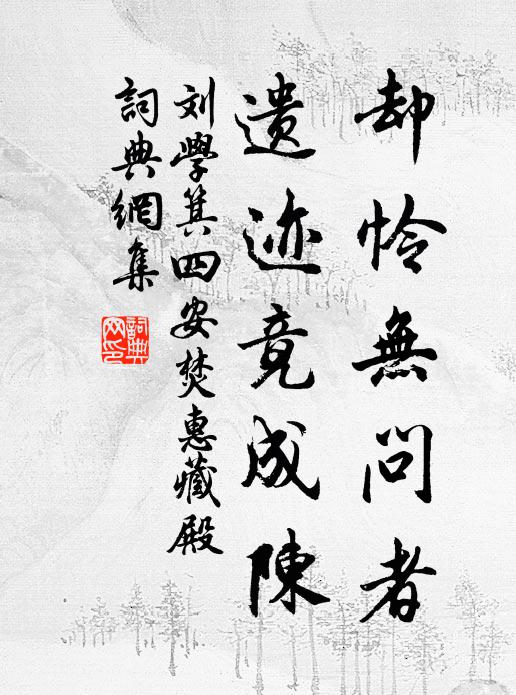 却怜無问者
遗迹竟成陳
刘學箕四安焚惠藏殿
詞典網集
詞典网印